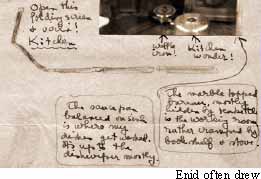 Open this
folding screen
& voila!
Kitchen
Waffle
iron!
Kitchen
wonder!
The saucepan
balanced on sink
is where my
dishes get washed.
It's up to the
dishwiper mostly.
The marble topped
barrier, mostly
hidden by
is the working room
rather cramped by
book shelf & stove.
Enid often drew